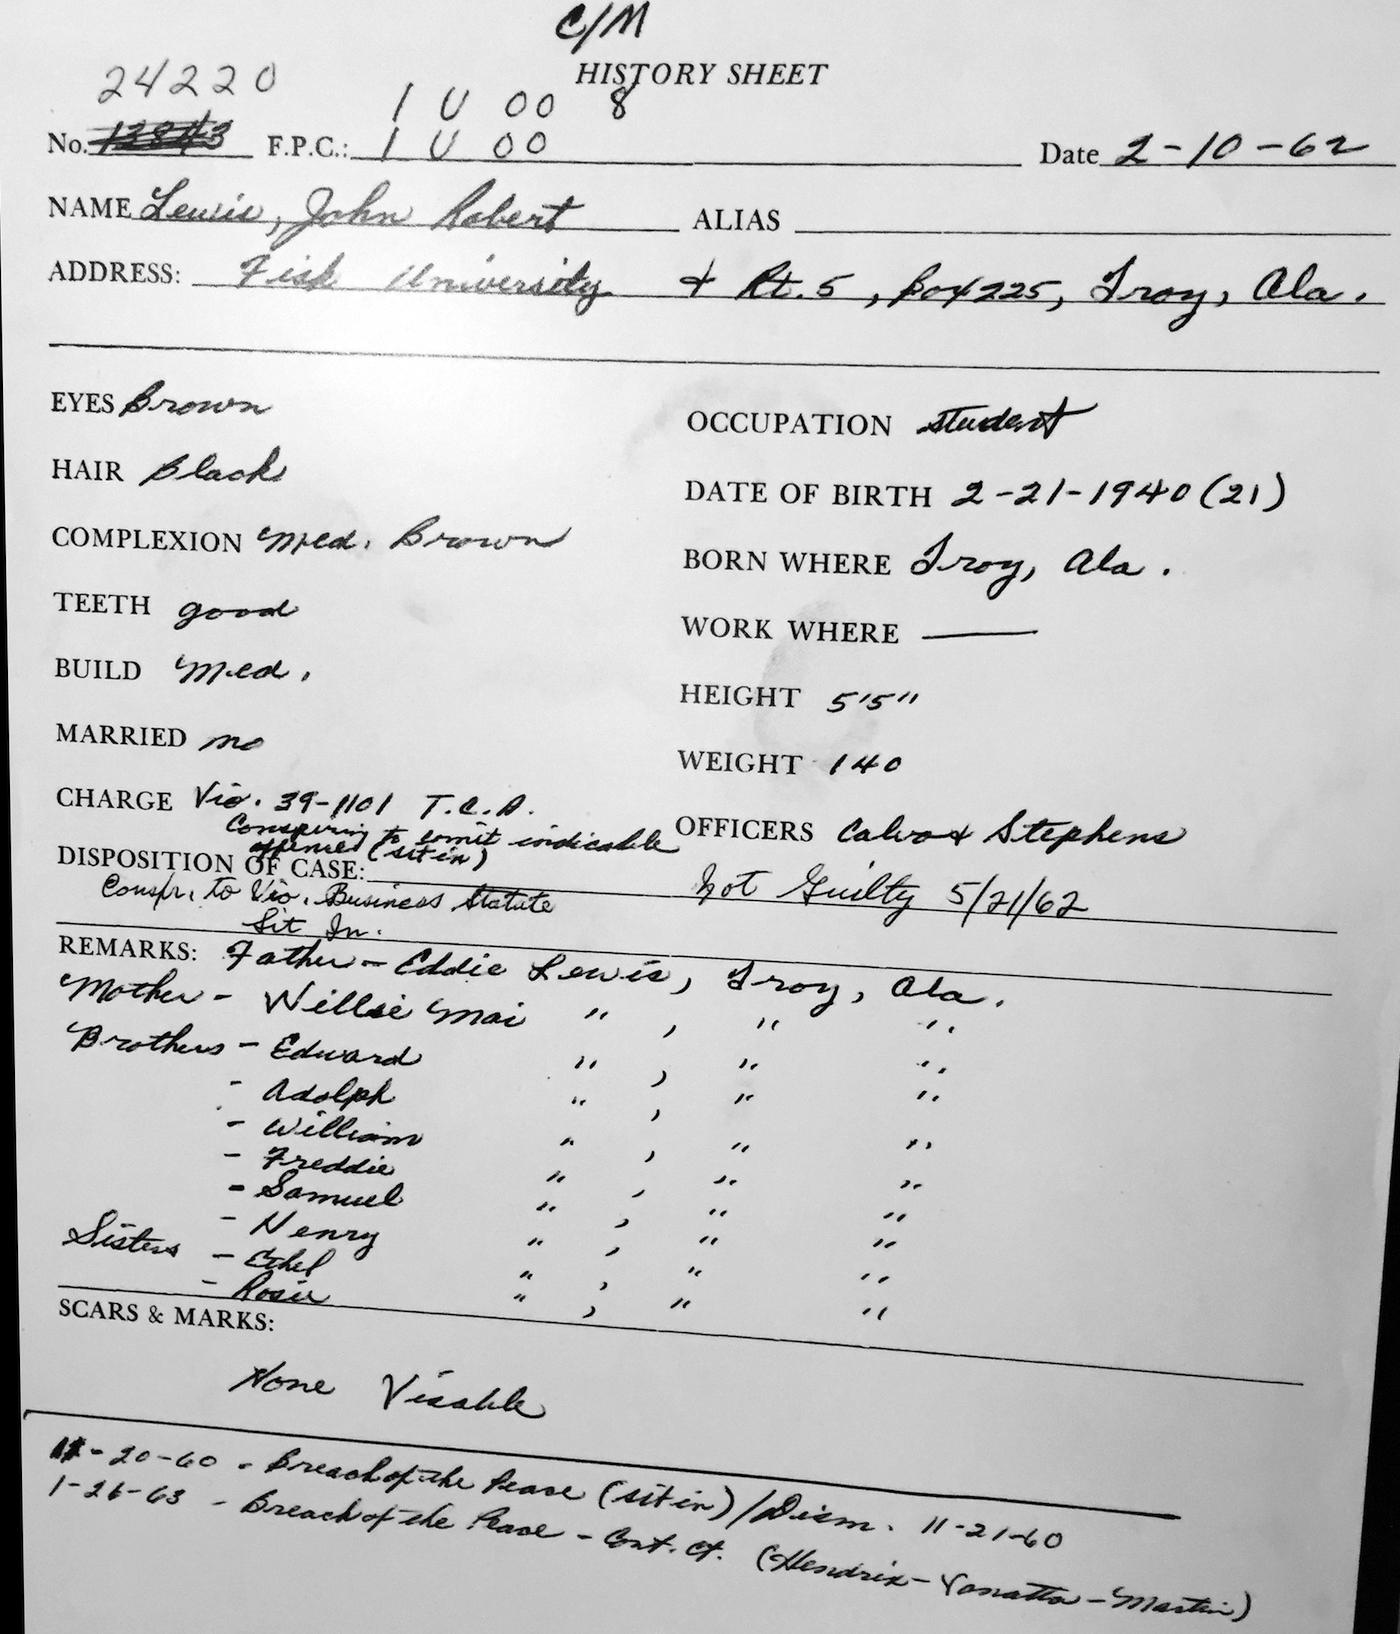 C/M
HISTORY SHEET
24220
1 U 00 8
No. 13843 F.P.C.: 1 U 00 Date 2-10-62
NAME Lewis, John Robert ALIAS
ADDRESS: Fisk University & Rt. 5, Box 225, Troy, Ala.
EYES Brown
OCCUPATION student
HAIR Black
DATE OF BIRTH 2-21-1940 (21)
COMPLEXION Med. Brown
BORN WHERE Troy, Ala.
TEETH good
WORK WHERE —
BUILD Med.
HEIGHT 5'5"
MARRIED no
WEIGHT 140
CHARGE Vio. 39-1101 T.C.A.
Conspiring to comit indicable
offenses (sit in)
OFFICERS Calvo & Stephens
DISPOSITION OF CASE:
Conspr. to Vio. Business Statute
Sit In.
Not Guilty 5/21/62
REMARKS: Father - Eddie Lewis, Troy, Ala.
Mother - Willie Mai " , " "
Brothers - Edward " , " "
- Adolph " , " "
- William " , " "
- Freddie " , " "
- Samuel " , " "
- Henry " , " "
Sisters - Ethel " , " "
- Rosie " , " "
SCARS & MARKS:
None Visable
11-20-60 - Breach of the Peace (sit in) / Dism. 11-21-60
1-26-63 - Breach of the Peace - Cont. Ct. (Hendrix - Vanatta - Martin)